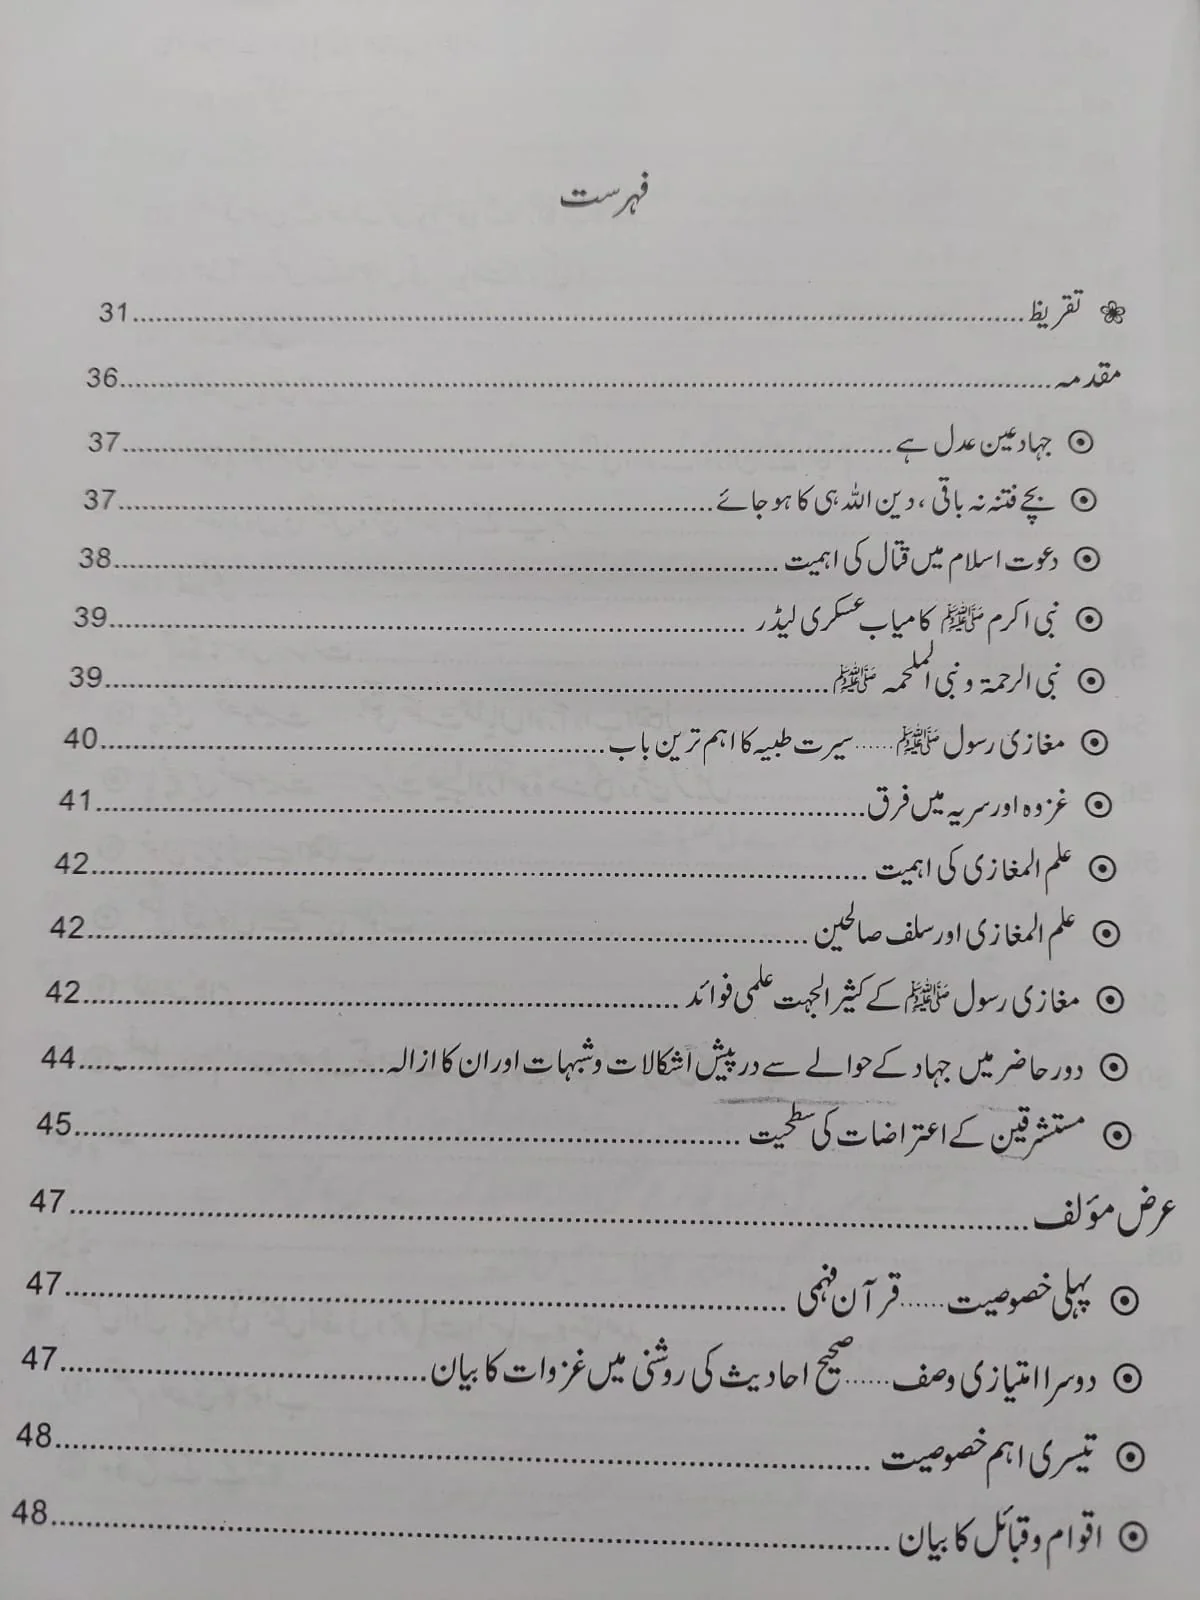 فہرست
تقریظ 31
مقدمہ 36
جہاد عین عدل ہے 37
بچے فتنہ نہ باقی، دین اللہ ہی کا ہو جائے 37
دعوت اسلام میں قتال کی اہمیت 38
نبی اکرم ﷺ کامیاب عسکری لیڈر 39
نبی الرحمۃ و نبی الملحمہ ﷺ 39
مغازی رسول ﷺ ...... سیرت طیبہ کا اہم ترین باب 40
غزوہ اور سریہ میں فرق 41
علم المغازی کی اہمیت 42
علم المغازی اور سلف صالحین 42
مغازی رسول ﷺ کے کثیر الجہت علمی فوائد 42
دور حاضر میں جہاد کے حوالے سے درپیش اشکالات و شبہات اور ان کا ازالہ 44
مستشرقین کے اعتراضات کی سطحیت 45
عرض مؤلف 47
پہلی خصوصیت ...... قرآن فہمی 47
دوسرا امتیازی وصف ...... صحیح احادیث کی روشنی میں غزوات کا بیان 47
تیسری اہم خصوصیت 48
اقوام و قبائل کا بیان 48